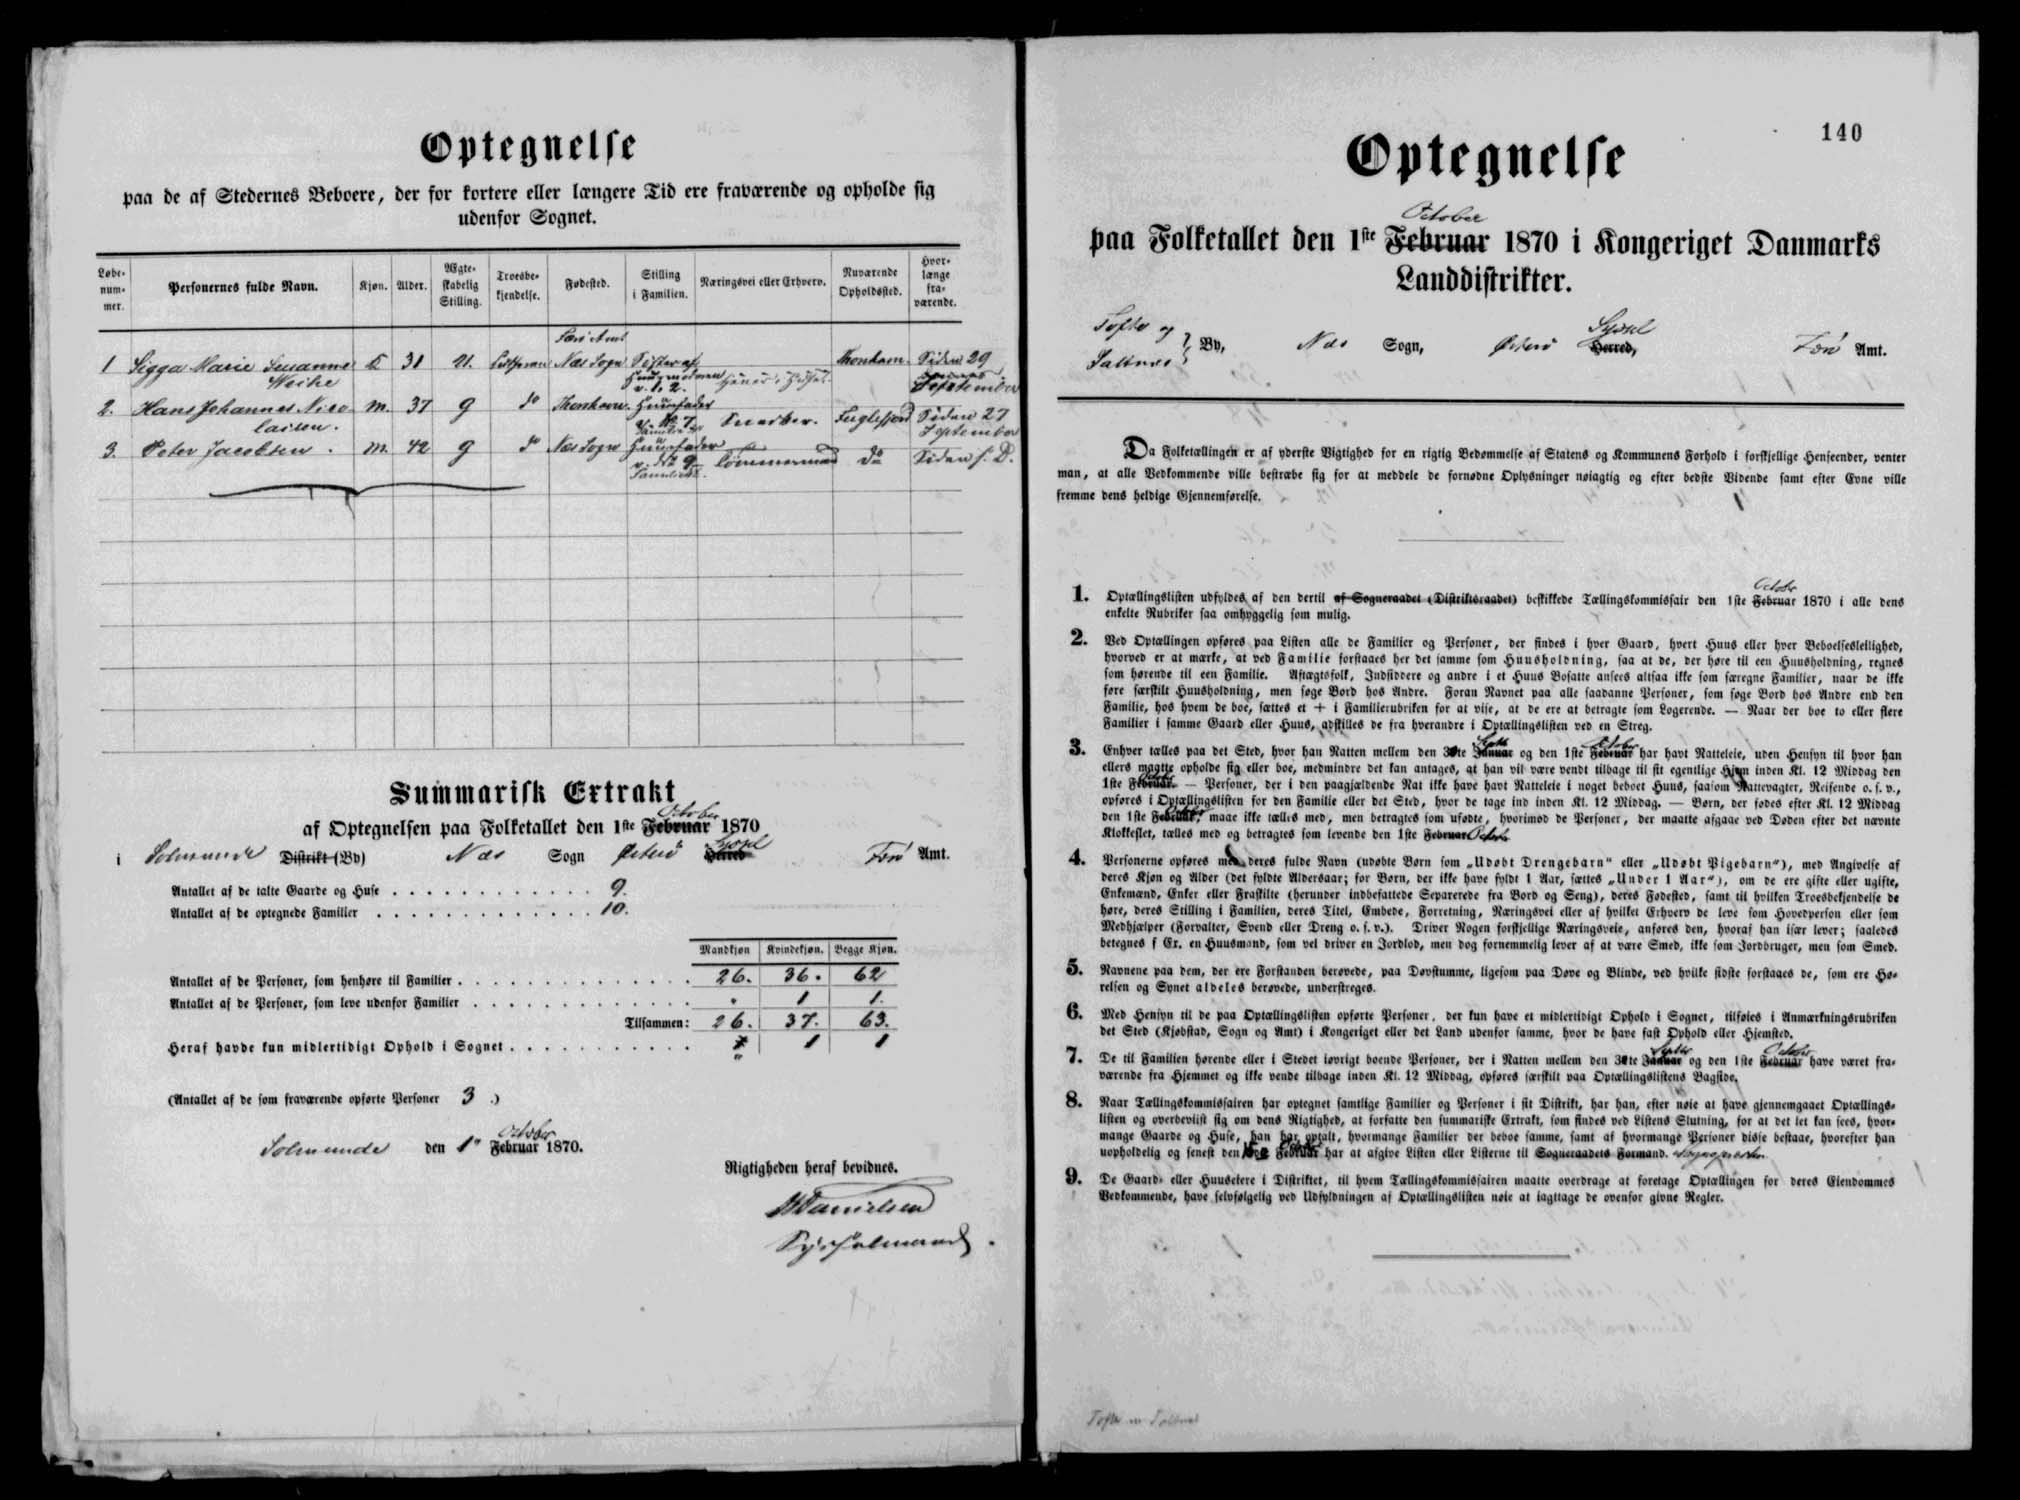 Optegnelse
paa de af Stedernes Beboere, der for kortere eller længere Tid ere fraværende og opholde sig
udenfor Sognet.
Løbe-
num-
mer.
Personernes fulde Navn.
Kjøn.
Alder.
Ægte-
skabelig
Stilling.
Troesbe-
kjendelse.
Fødested.
Stilling
i Familien.
Næringsvei eller Erhverv.
Nuværende
Opholdssted.
Hvor-
længe
fra-
værende.
1 Sigga Marie Susanne 31 U. Næs Sogn Søster af Siden 29
September
2. Hans Johannes Nico- m. 37 g do Thorshavn. Huusfader Snedker. Fuglefjord Siden 27
laisen. September
3. Peter Jacobsen . m. 42 g do Næs Sogn Huusfader Tømmermand do Siden s. D.
Summarisk Extrakt
October
af Optegnelsen paa Folketallet den 1ste Februar 1870
i Solmunde Distrikt (By) Næs Sogn Østerø Syssel Herred Færø Amt.
Antallet af de talte Gaarde og Huse 9.
Antallet af de optegnede Familier 10.
Mandkjøn Kvindekjøn. Begge Kjøn.
Antallet af de Personer, som henhøre til Familier 26. 36. 62
Antallet af de Personer, som leve udenfor Familier " 1 1.
Tilsammen: 26. 37. 63.
Heraf havde kun midlertidigt Ophold i Sognet " 1 1
(Antallet af de som fraværende opførte Personer 3.)
October
Solmunde den 1ste Februar 1870.
Rigtigheden heraf bevidnes.
Danielsen
Sysselmand.
140
Optegnelse
October
paa Folketallet den 1ste Februar 1870 i Kongeriget Danmarks
Landdistrikter.
Tofte og
Saltnæs By, Næs Sogn, Østerø Syssel Herred, Færø Amt.
Da Folketællingen er af yderste Vigtighed for en rigtig Bedømmelse af Statens og Kommunens Forhold i forskjellige Henseender, venter
man, at alle Vedkommende ville bestræbe sig for at meddele de fornødne Oplysninger nøiagtig og efter bedste Vidende samt efter Evne ville
fremme dens heldige Gjennemførelse.
October
1. Optællingslisten udfyldes af den dertil af Sogneraadet (Distriktsraadet) beskikkede Tællingskommissair den 1ste Februar 1870 i alle dens
enkelte Rubriker saa omhyggelig som mulig.
2. Ved Optællingen opføres paa Listen alle de Familier og Personer, der findes i hver Gaard, hvert Huus eller hver Beboelsesleilighed,
hvorved er at mærke, at ved Familie forstaaes her det samme som Huusholdning, saa at de, der høre til een Huusholdning, regnes
som hørende til een Familie. Aftægtsfolk, Indsiddere og andre i et Huus Bosatte ansees altsaa ikke som særegne Familier, naar de ikke
føre særskilt Huusholdning, men søge Bord hos Andre. Foran Navnet paa alle saadanne Personer, som søge Bord hos Andre end den
Familie, hos hvem de boe, sættes et + i Familierubriken for at vise, at de ere at betragte som Logerende. — Naar der boe to eller flere
Familier i samme Gaard eller Huus, adskilles de fra hverandre i Optællingslisten ved en Streg.
3. Enhver tælles paa det Sted, hvor han Natten mellem den 30te Septbr Januar og den 1ste October Februar har havt Natteleie, uden Hensyn til hvor han
ellers maatte opholde sig eller boe, medmindre det kan antages, at han vil være vendt tilbage til sit egentlige Hjem inden Kl. 12 Middag den
1ste October Februar. — Personer, der i den paagjældende Nat ikke have havt Natteleie i noget beboet Huus, saasom Nattevagter, Reisende o. s. v.,
opføres i Optællingslisten for den Familie eller det Sted, hvor de tage ind inden Kl. 12 Middag. — Børn, der fødes efter Kl. 12 Middag
den 1ste Februar, maae ikke tælles med, men betragtes som ufødte, hvorimod de Personer, der maatte afgaae ved Døden efter det nævnte
Klokkeslet, tælles med og betragtes som levende den 1ste Februar October
4. Personerne opføres med deres fulde Navn (udøbte Børn som „Udøbt Drengebarn“ eller „Udøbt Pigebarn“), med Angivelse af
deres Kjøn og Alder (det fyldte Aldersaar; for Børn, der ikke have fyldt 1 Aar, sættes „Under 1 Aar“), om de ere gifte eller ugifte,
Enkemænd, Enker eller Fraskilte (herunder indbefattede Separerede fra Bord og Seng), deres Fødested, samt til hvilken Troesbekjendelse de
høre, deres Stilling i Familien, deres Titel, Embede, Forretning, Næringsvei eller af hvilket Erhverv de leve som Hovedperson eller som
Medhjælper (Forvalter, Svend eller Dreng o. s. v.). Driver Nogen forskjellige Næringsveie, anføres den, hvoraf han især lever; saaledes
betegnes f Ex. en Huusmand, som vel driver en Jordlod, men dog fornemmelig lever af at være Smed, ikke som Jordbruger, men som Smed.
5. Navnene paa dem, der ere Forstanden berøvede, paa Døvstumme, ligesom paa Døve og Blinde, ved hvilke sidste forstaaes de, som ere Hø-
relsen og Synet aldeles berøvede, understreges.
6. Med Hensyn til de paa Optællingslisten opførte Personer, der kun have et midlertidigt Ophold i Sognet, tilføies i Anmærkningsrubriken
det Sted (Kjøbstad, Sogn og Amt) i Kongeriget eller det Land udenfor samme, hvor de have fast Ophold eller Hjemsted.
7. De til Familien hørende eller i Stedet iøvrigt boende Personer, der i Natten mellem den 30te Septbr Januar og den 1ste October Februar have været fra-
værende fra Hjemmet og ikke vende tilbage inden Kl. 12 Middag, opføres særskilt paa Optællingslistens Bagside.
8. Naar Tællingskommissairen har optegnet samtlige Familier og Personer i sit Distrikt, har han, efter nøie at have gjennemgaaet Optællings-
listen og overbeviist sig om dens Rigtighed, at forfatte den summariske Extrakt, som findes ved Listens Slutning, for at det let kan sees, hvor-
mange Gaarde og Huse, han har optalt, hvormange Familier der beboe samme, samt af hvormange Personer disse bestaae, hvorefter han
uopholdelig og senest den Februar har at afgive Listen eller Listerne til Sogneraadets Formand. Sognepræsten
9. De Gaard- eller Huuseiere i Distriktet, til hvem Tællingskommissairen maatte overdrage at foretage Optællingen for deres Eiendommes
Vedkommende, have selvfølgelig ved Udfyldningen af Optællingslisten nøie at iagttage de ovenfor givne Regler.